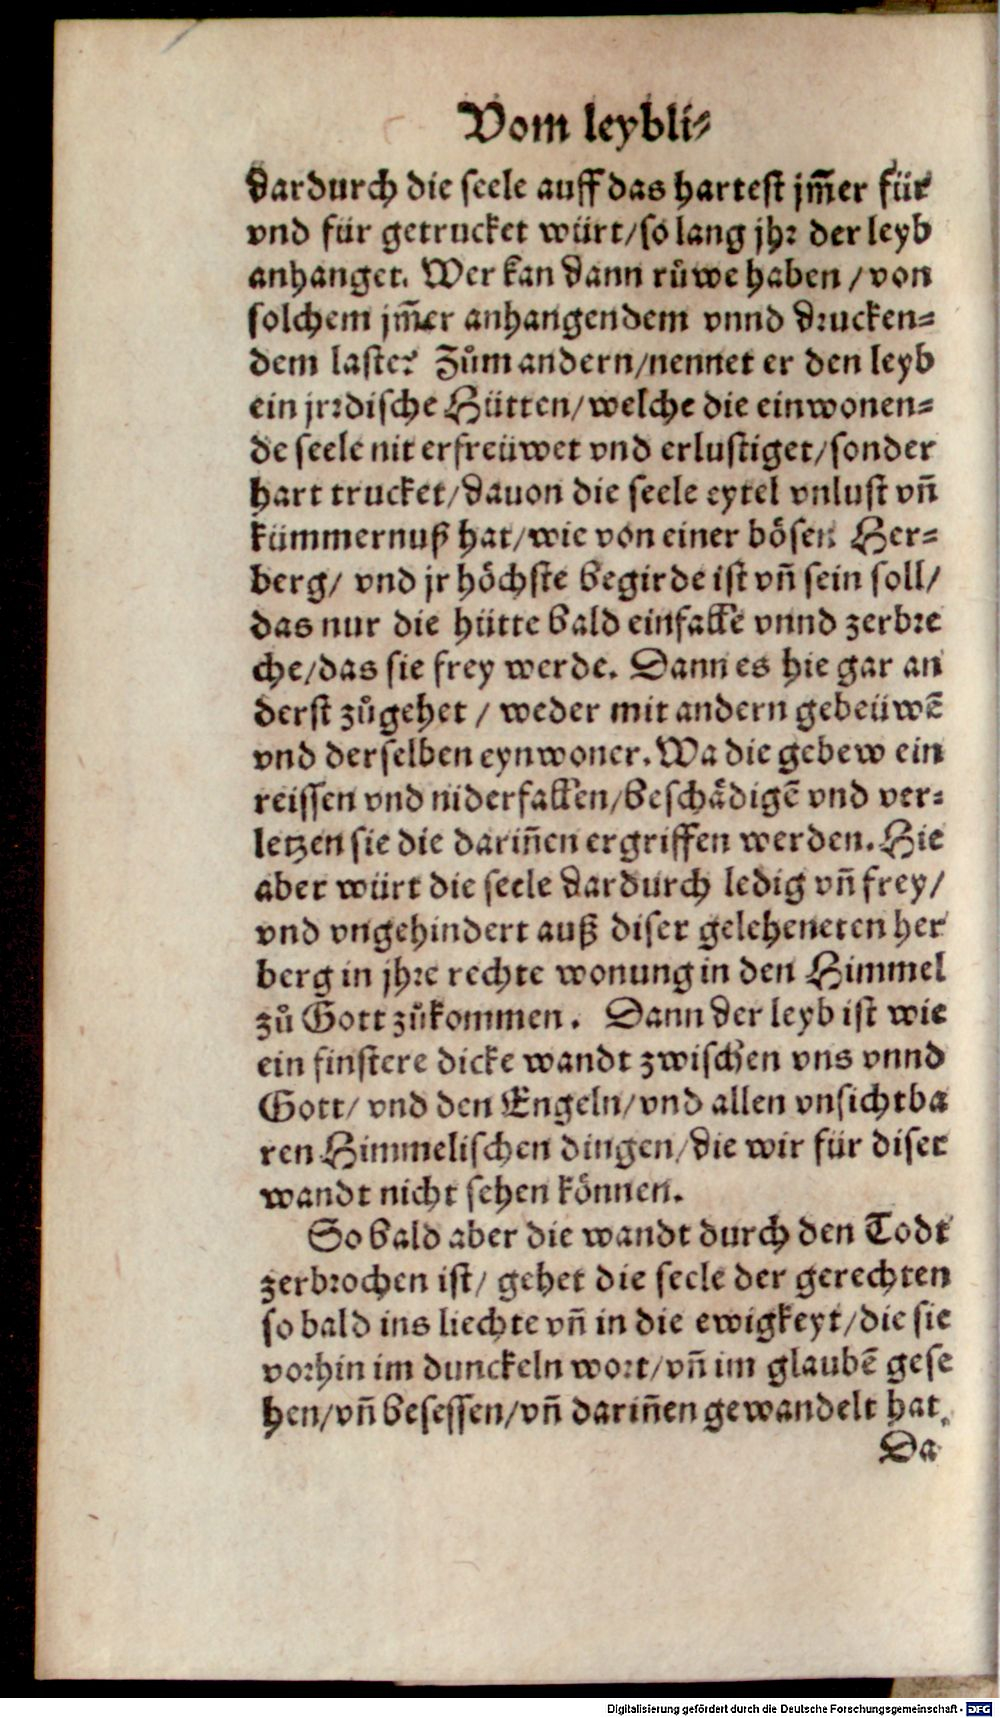 Vom leybli⸗
dardurch die seele auff das hartest jm̃er für
vnd für getrucket würt/so lang jhr der leyb
anhanget. Wer kan dann růwe haben /von
solchem jm̃er anhangendem vnnd drucken⸗
dem last? Zům andern/nennet er den leyb
ein jrrdische Hütten/welche die einwonen⸗
de seele nit erfreüwet vnd erlustiget/sonder
hart trucket/dauon die seele eytel vnlust vñ
kümmernuß hat/wie von einer bösen Her⸗
berg/ vnd jr höchste begirde ist vñ sein soll/
das nur die hütte bald einfalle vnnd zerbre
che/das sie frey werde. Dann es hie gar an
derst zůgehet / weder mit andern gebeüwẽ
vnd derselben eynwoner. Wa die gebew ein
reissen vnd niderfallen/beschådigẽ vnd ver⸗
letzen sie die dariñen ergriffen werden. Hie
aber würt die seele dardurch ledig vñ frey/
vnd vngehindert auß diser geleheneten her
berg in jhre rechte wonung in den Himmel
zů Gott zůkommen. Dann der leyb ist wie
ein finstere dicke wandt zwischen vns vnnd
Gott/ vnd den Engeln/vnd allen vnsichtba
ren Himmelischen dingen/die wir für diser
wandt nicht sehen können.
So bald aber die wandt durch den Todt
zerbrochen ist/ gehet die seele der gerechten
so bald ins liechte vñ in die ewigkeyt/die sie
vorhin im dunckeln wort/vñ im glaubẽ gese
hen/vñ besessen/vñ dariñen gewandelt hat.
Da
Digitalisierung gefördert durch die Deutsche Forschungsgemeinschaft - DFG